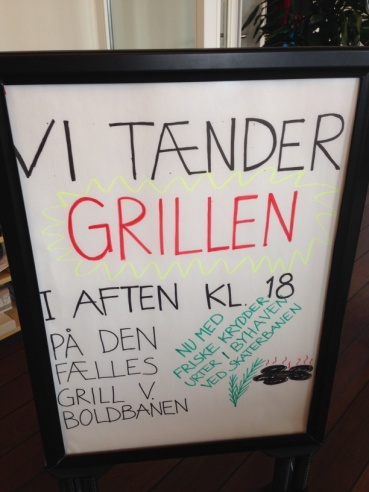 VI TÆNDER
GRILLEN
I AFTEN KL. 18
PÅ DEN
FÆLLES
GRILL V.
BOLDBANEN
NU MED
FRISKE KRYDDER
URTER I BYHAVEN
VED SKATERBANEN